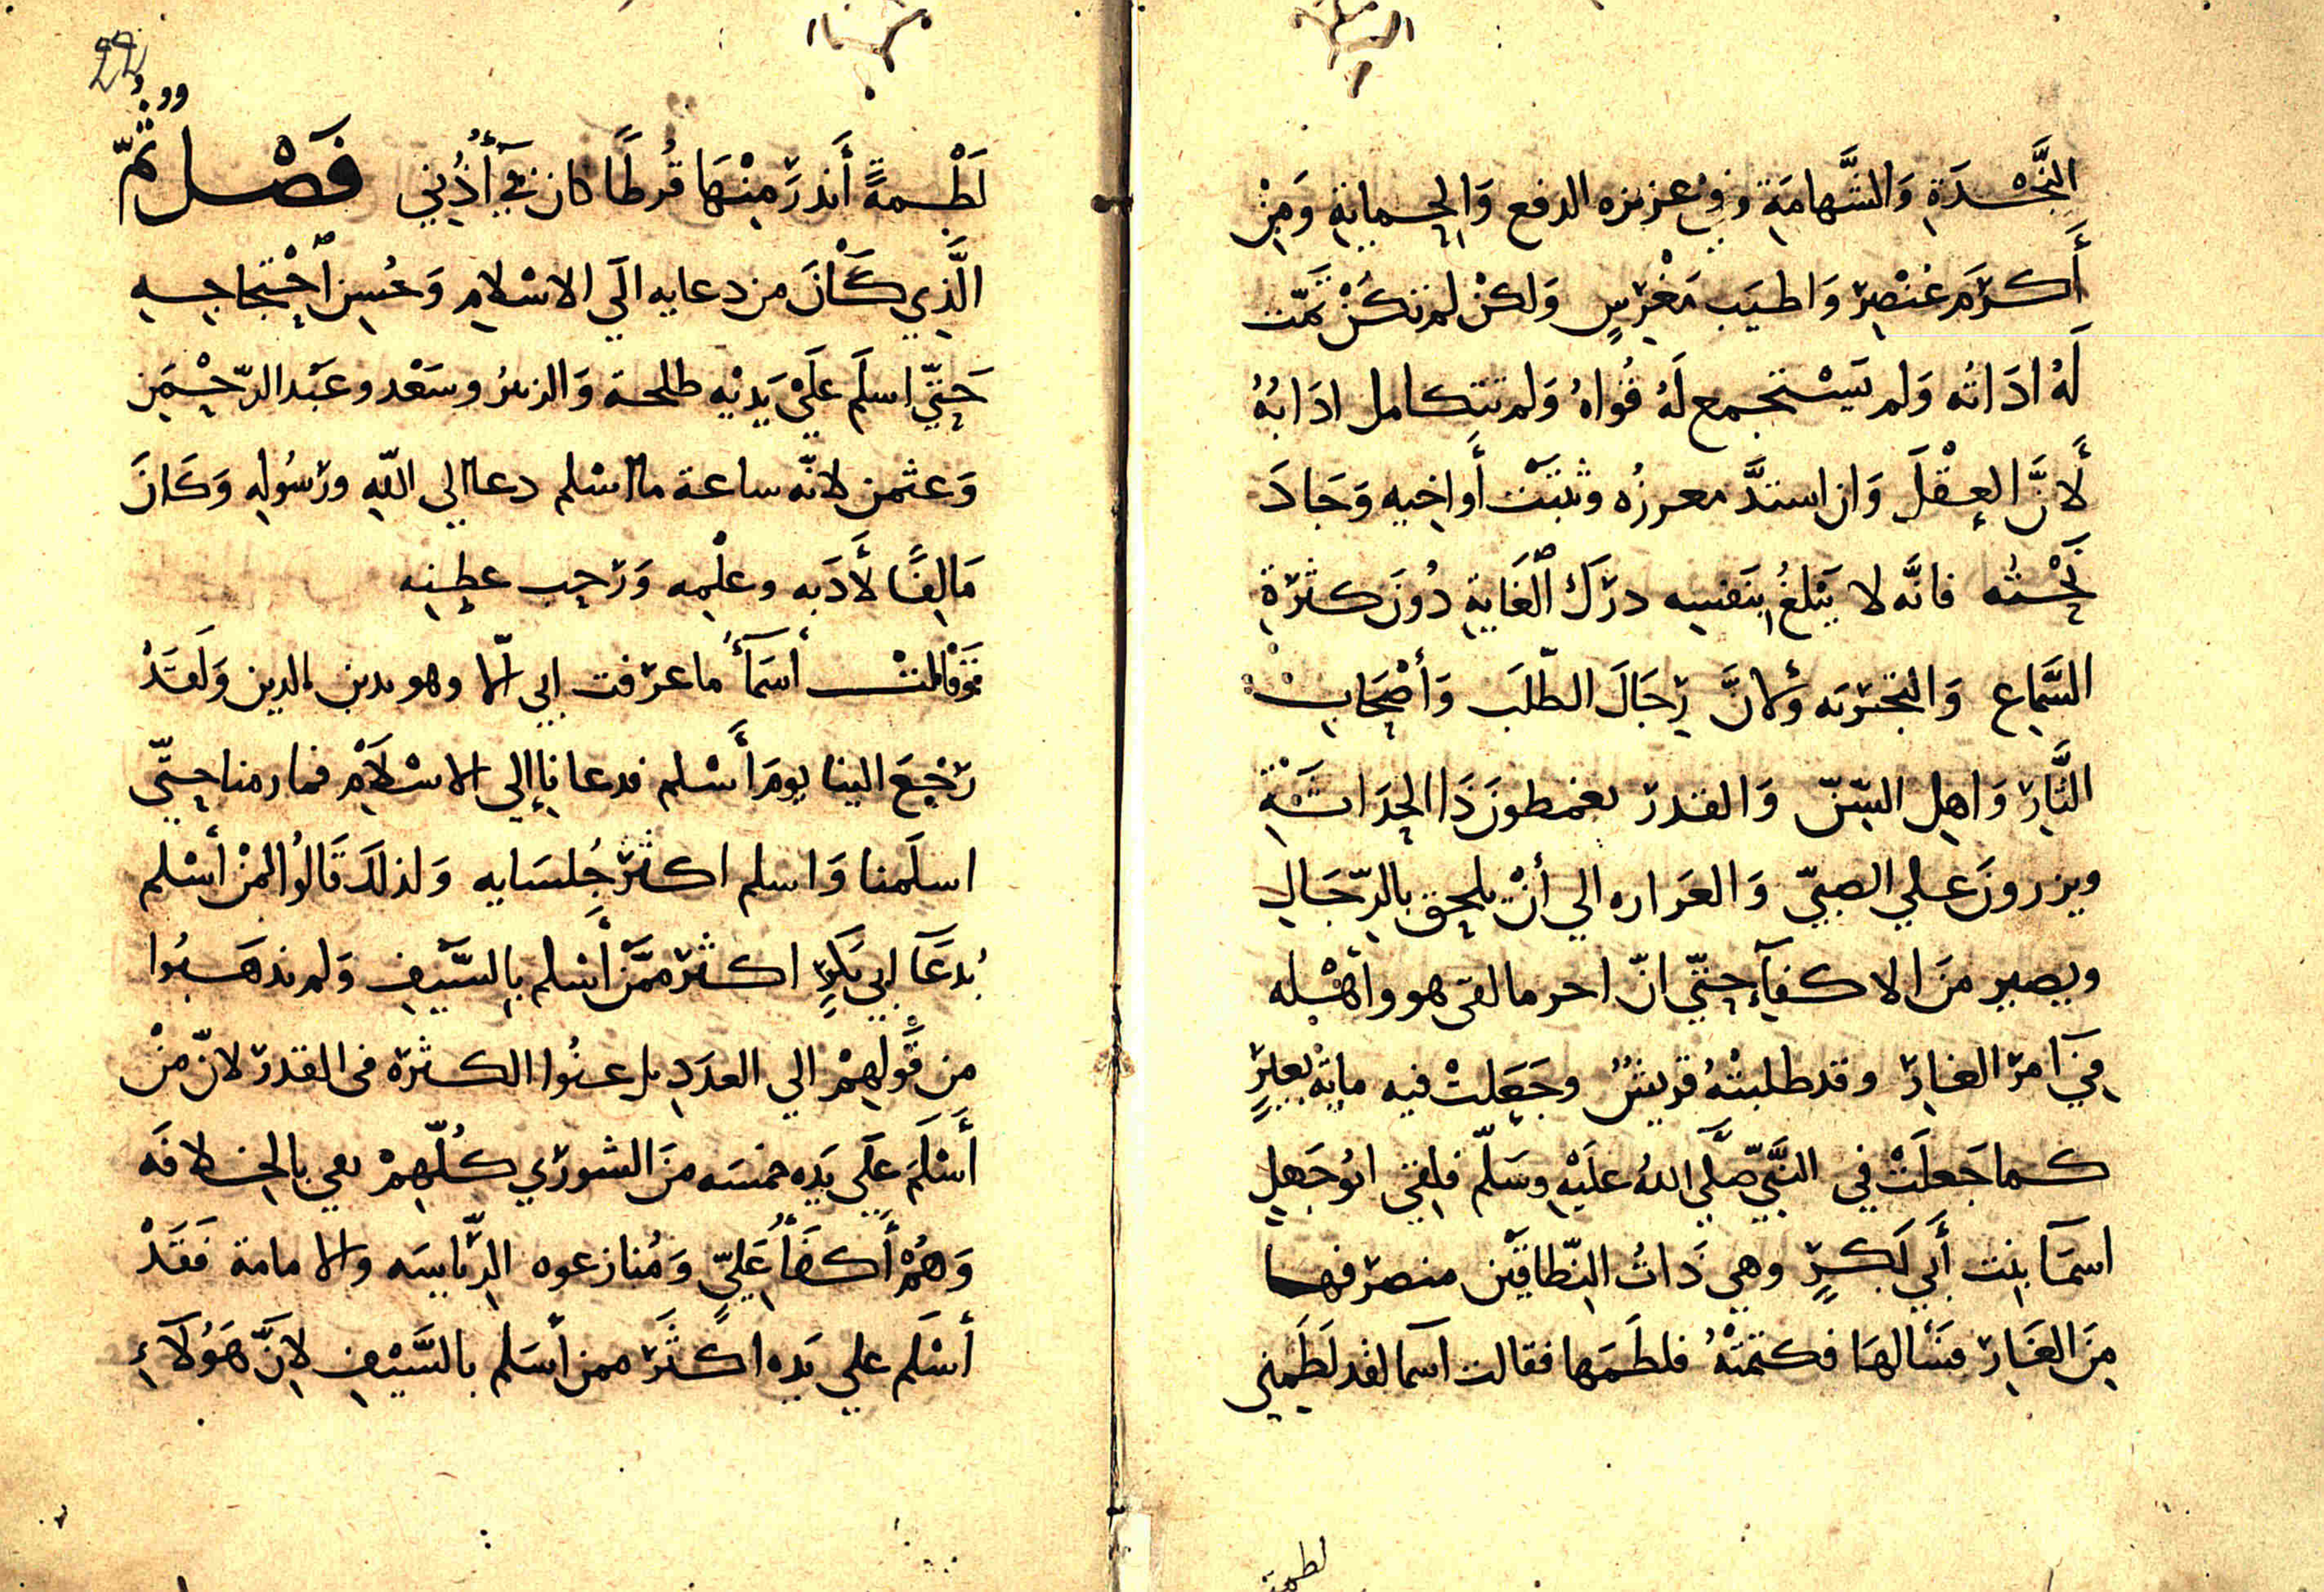 النَّجْدَةِ وَالشَّهامَةِ وفي عزيزه الدفع وَالحِمايةِ وَمِنْ
أَكرَمِ عُنْصِرٍ وَاطيَب مَغْرِسٍ وَلكنْ لم تكنْ تمّت
لَهُ ادَاتُه وَلم يَسْتجمع لَهُ قُوَاهُ وَلم تتكامل ادَابُهُ
لأَنَّ العقْلَ وَان اشتدَّ مغرزُه وثبَتَتْ أَواخيه وَجَادَ
نَحْتُه فانَّه لا يَبْلغُ بنَفسِه درَكَ الغَايةِ دُونَ كثرَةِ
السَّمِاع وَالتجْربَه وَلانَّ رِجَالَ الطّلَب وَأَصْحَابْ
الثَّارِ وَاهِل السِّنّ وَالقدر يغمطونَ ذَا الحِدَاثَةِ
ويزرونَ علي الصبيّ وَالغَراره الي أنْ يلحق بالرّجَالِ
ويصير منَ الاكفآءِ حتّي انّ احر مالقى هو واهْله
فِي آمرْ الغارِ وقد طلبتْهُ قريشٌ وجَعَلتْ فيه مايةْ بعيرٍ
كما جَعلَتْ في النَّبيّ صَلَّي اللهُ علَيْهِ وسَلّم فلقي ابُو جَهلٍ
اسمَآ بِنت أَبي بَكرٍ وهي ذَاتُ النِّطاقَيْن منصرَفها
مِنَ الغَارِ فسَألهَا فكتمَتْهُ فلطَمَها فقالت آسما لقد لَطَمِني
لطمة
22
لَطْمةً أَندرَ مِنْهَا قُرطًا كان في أُذُني فَصْل ثمّ
الَّذِي كَانَ من دعايه الَي الاسْلامِ وَحُسِن احْتِجاجِه
حَتّي اسلَم علَيْ يَدَيْهِ طلحة وَالزبيرُ وسَعْد وعَبْد الرّحْمَن
وَعثمن لانّه ساعة ما اسْلم دعا الي اللّهِ ورَسُولِهِ وَكَانَ
مَالِفًا لأَدَبه وعلْمِه وَرَحِب عطِنِه
وَقَالَتْ أسَمَآُ ما عرَفت ابي الاّ وهو يدين بالدين وَلَقدْ
رَجَعَ الينا يومَ أَسْلم فدعانا إلي الاسْلَامِ فمارمنا حتّي
اسلَمنا وَاسلم اكثرْ جُلسَايه وَلذلكَ قَالُوا لمنْ أسْلم
بُدعَآ ابي بَكرٍ اكثرْ ممَّنْ أَسْلم بِالسَّيفِ وَلم يذهَبُوا
من قَولِهمْ الي العدَدِ بل عنُوا الكثرَة فى القدر لانّ منْ
أَسْلَمَ علَي يَدِه خمسَه منَ الشورَي كُلّهِمْ يفي بالخِلافَه
وَهُمْ أَكفَأُ عَليّ وَمُنازعوه الرّيَاسَه والامامة فَقَدْ
أسْلَم علي يَدِه اكثَرْ ممن اسَلم بالسَّيْفِ لانَّ هَوُلآءِ